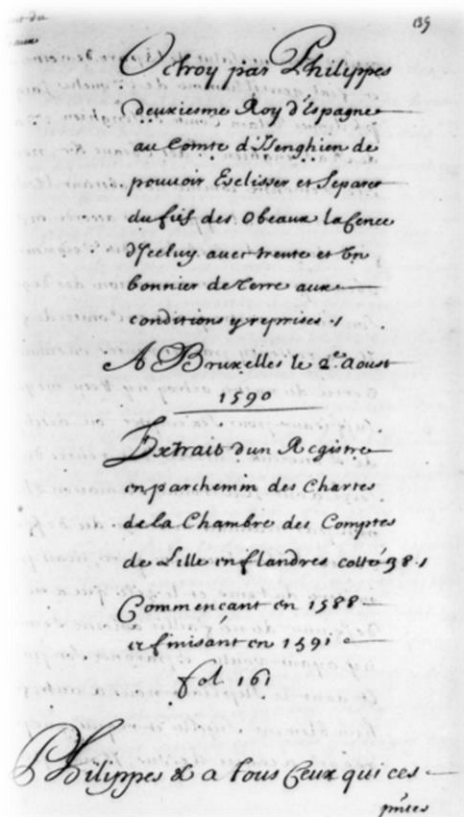 139
Octroy par Philippes
deuxiesme Roy d'Espagne
au Comte d'Isenghien de
pouvoir Esclisser et Separer
du fief des Obeaux la Cence
d'Iceluy avec trente et Un
bonnier de terre aux
conditions y reprises .
A Bruxelles le 2.e Aoust
1590
Extrait d'un Registre
en parchemin des Chartes
de la Chambre des Comptes
de Lille en flandres cotté 38.
Commençant en 1588
et finisant en 1591
fol 161
Philippes & a tous Ceux qui ces
pntes